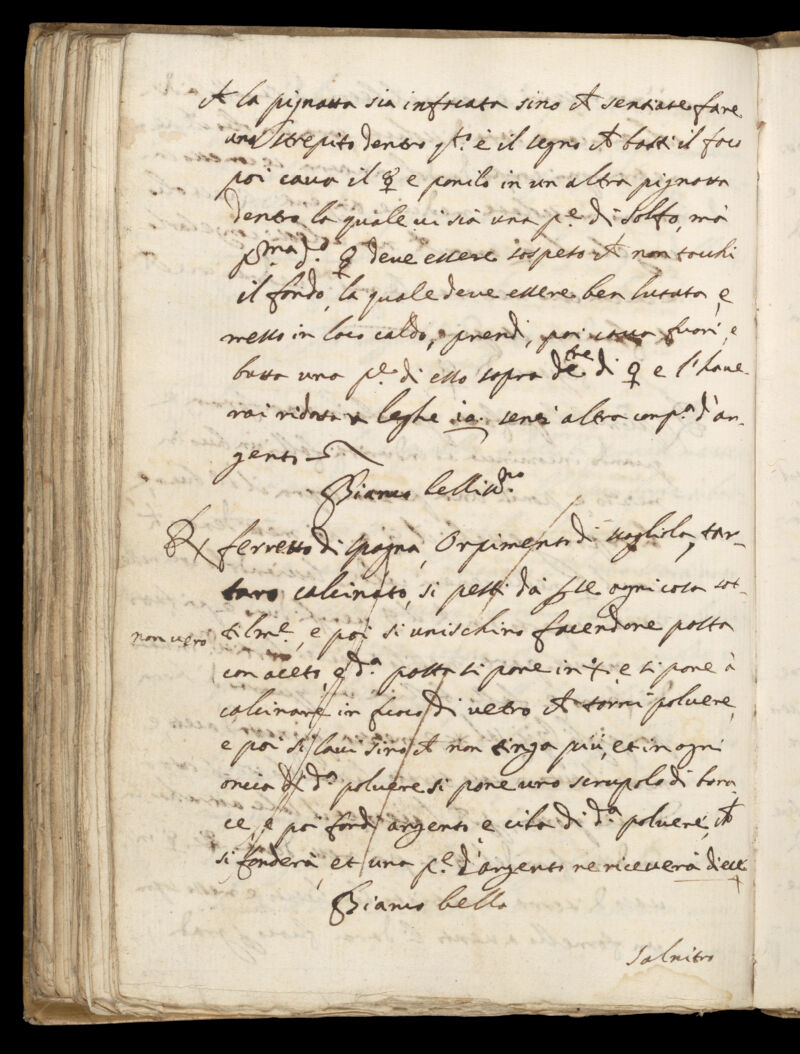 la pignatta sia infocata sino sentiate fare
uno strepito dentro q.to è il segno basti il foco
poi cava il ☿ e ponilo in un altra pignatta
dentro la quale vi sia una p.e di solfo, mà
p.ma d.o ☿ deve essere sospeso non tochi
il fondo, la quale deve essere ben lutata, e
messo in loco caldo, prendi, poi fuori, e
butta una p.e di esso sopra di ☿ e l'have-
rai ridotta a leghe senz altra comp.a d'ar-
gento
Bianco belliss.mo
℞ ferretto di spagna, Orpimento di, tar-
taro calcinato, si pesti da se ogni cosa sot-
non vero
tilm.e, e poi si unischino facendone pasta
con aceto, e d.a pasta si pone in e si pone à
calcinare in fuoco di vetro torni polvere,
e poi si lavi sino non tinga più, et in ogni
oncia di d.a polvere si pone uno scrupolo di bora
ce, e poi fondi argento e ciba di d.a polvere,
si fonderà, et una p.e d'argento ne riceverà diece
Bianco bello
Salnitro